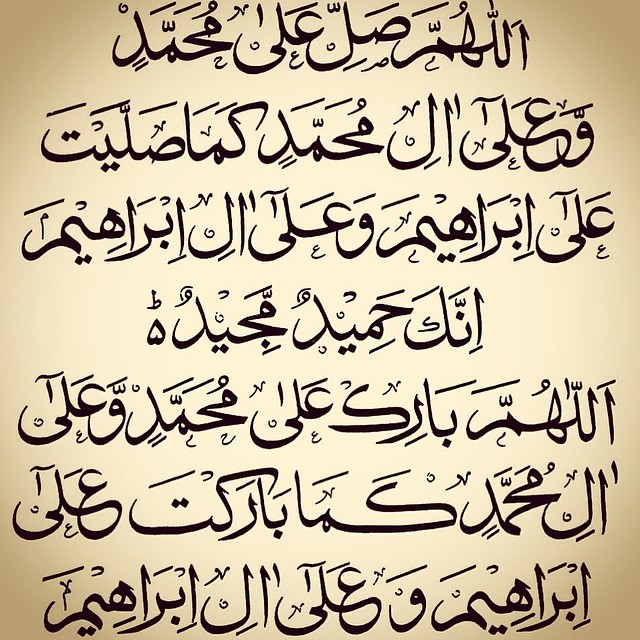 اَللّٰهُمَّ صَلِّ عَلٰى مُحَمَّدٍ
وَّعَلٰٓى اٰلِ مُحَمَّدٍ كَمَا صَلَّيْتَ
عَلٰٓى اِبْرَاهِيْمَ وَعَلٰٓى اٰلِ اِبْرَاهِيْمَ
اِنَّكَ حَمِيْدٌ مَّجِيْدٌ ؕ
اَللّٰهُمَّ بَارِكْ عَلٰى مُحَمَّدٍ وَّعَلٰٓى
اٰلِ مُحَمَّدٍ كَمَا بَارَكْتَ عَلٰٓى
اِبْرَاهِيْمَ وَ عَلٰٓى اٰلِ اِبْرَاهِيْمَ